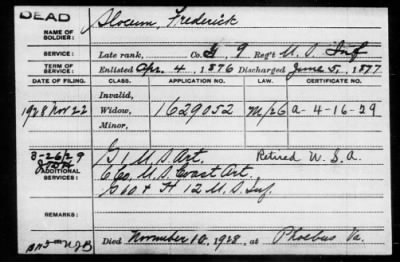 DEAD
NAME OF SOLDIER: Slocum, Frederick
SERVICE: Late rank, Co. G, 9 Reg't U. S. Inf
TERM OF SERVICE: Enlisted Apr. 4, 1876 Discharged June 5, 1877
DATE OF FILING. CLASS. APPLICATION NO. CERTIFICATE NO.
Invalid,
1928 Nov 22 Widow, 1629052 A-4-16-29
Minor,
8-26/29 G 1 U.S. Art. Retired U.S.A.
ADDITIONAL SERVICES: 6 Co. U.S. Coast Art.
G and H 12 U.S. Inf.
REMARKS:
Died November 10, 1928, at Phoebus Va.